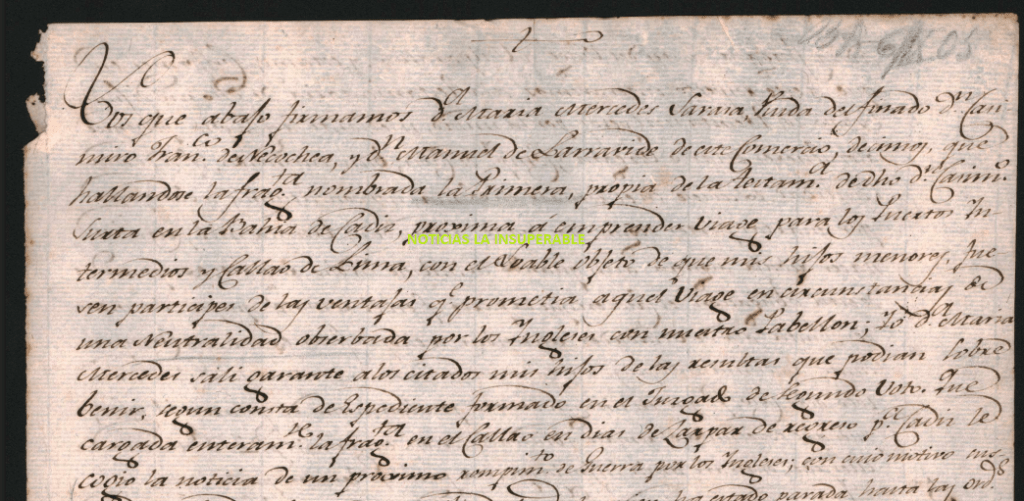 Los que abajo firmamos Dª Maria Mercedes Sarasa Viuda del finado Dn Casi-
miro Franco. de Necochea, y Dn Manuel de Larravide de este Comercio, decimos, que
hallandose la fragta nombrada la Primera, propia de la testama. de dho Dn Casimo.
Surta en la Bahia de Cadiz, proxima á emprender viage para los Puertos In
NOTICIAS LA INSUPERABLE
termedios y Callao de Lima, con el loable objeto de que mis hijos menores, fue
sen participes de las ventajas q.e prometia aquel Viage en circunstancias de
una Neutralidad obserbada por los Ingleses con nuestro Pabellon; Yo Dª Maria
Mercedes sali garante a los citados mis hijos de las resultas que podian sobre
benir, segun consta de Espediente formado en el Juzgado de segundo Voto. Que
cargada enteramte. la fragta en el Callao en dias de Zarpar de regreso pª Cadiz le
cogio la noticia de un proximo rompimto. de Guerra por los Ingleses; con cuio motivo
ha estado parada hasta las